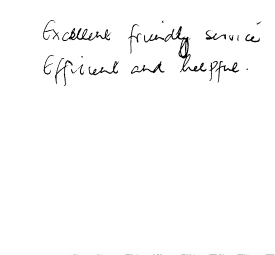 Excellent friendly service
Efficient and helpful.